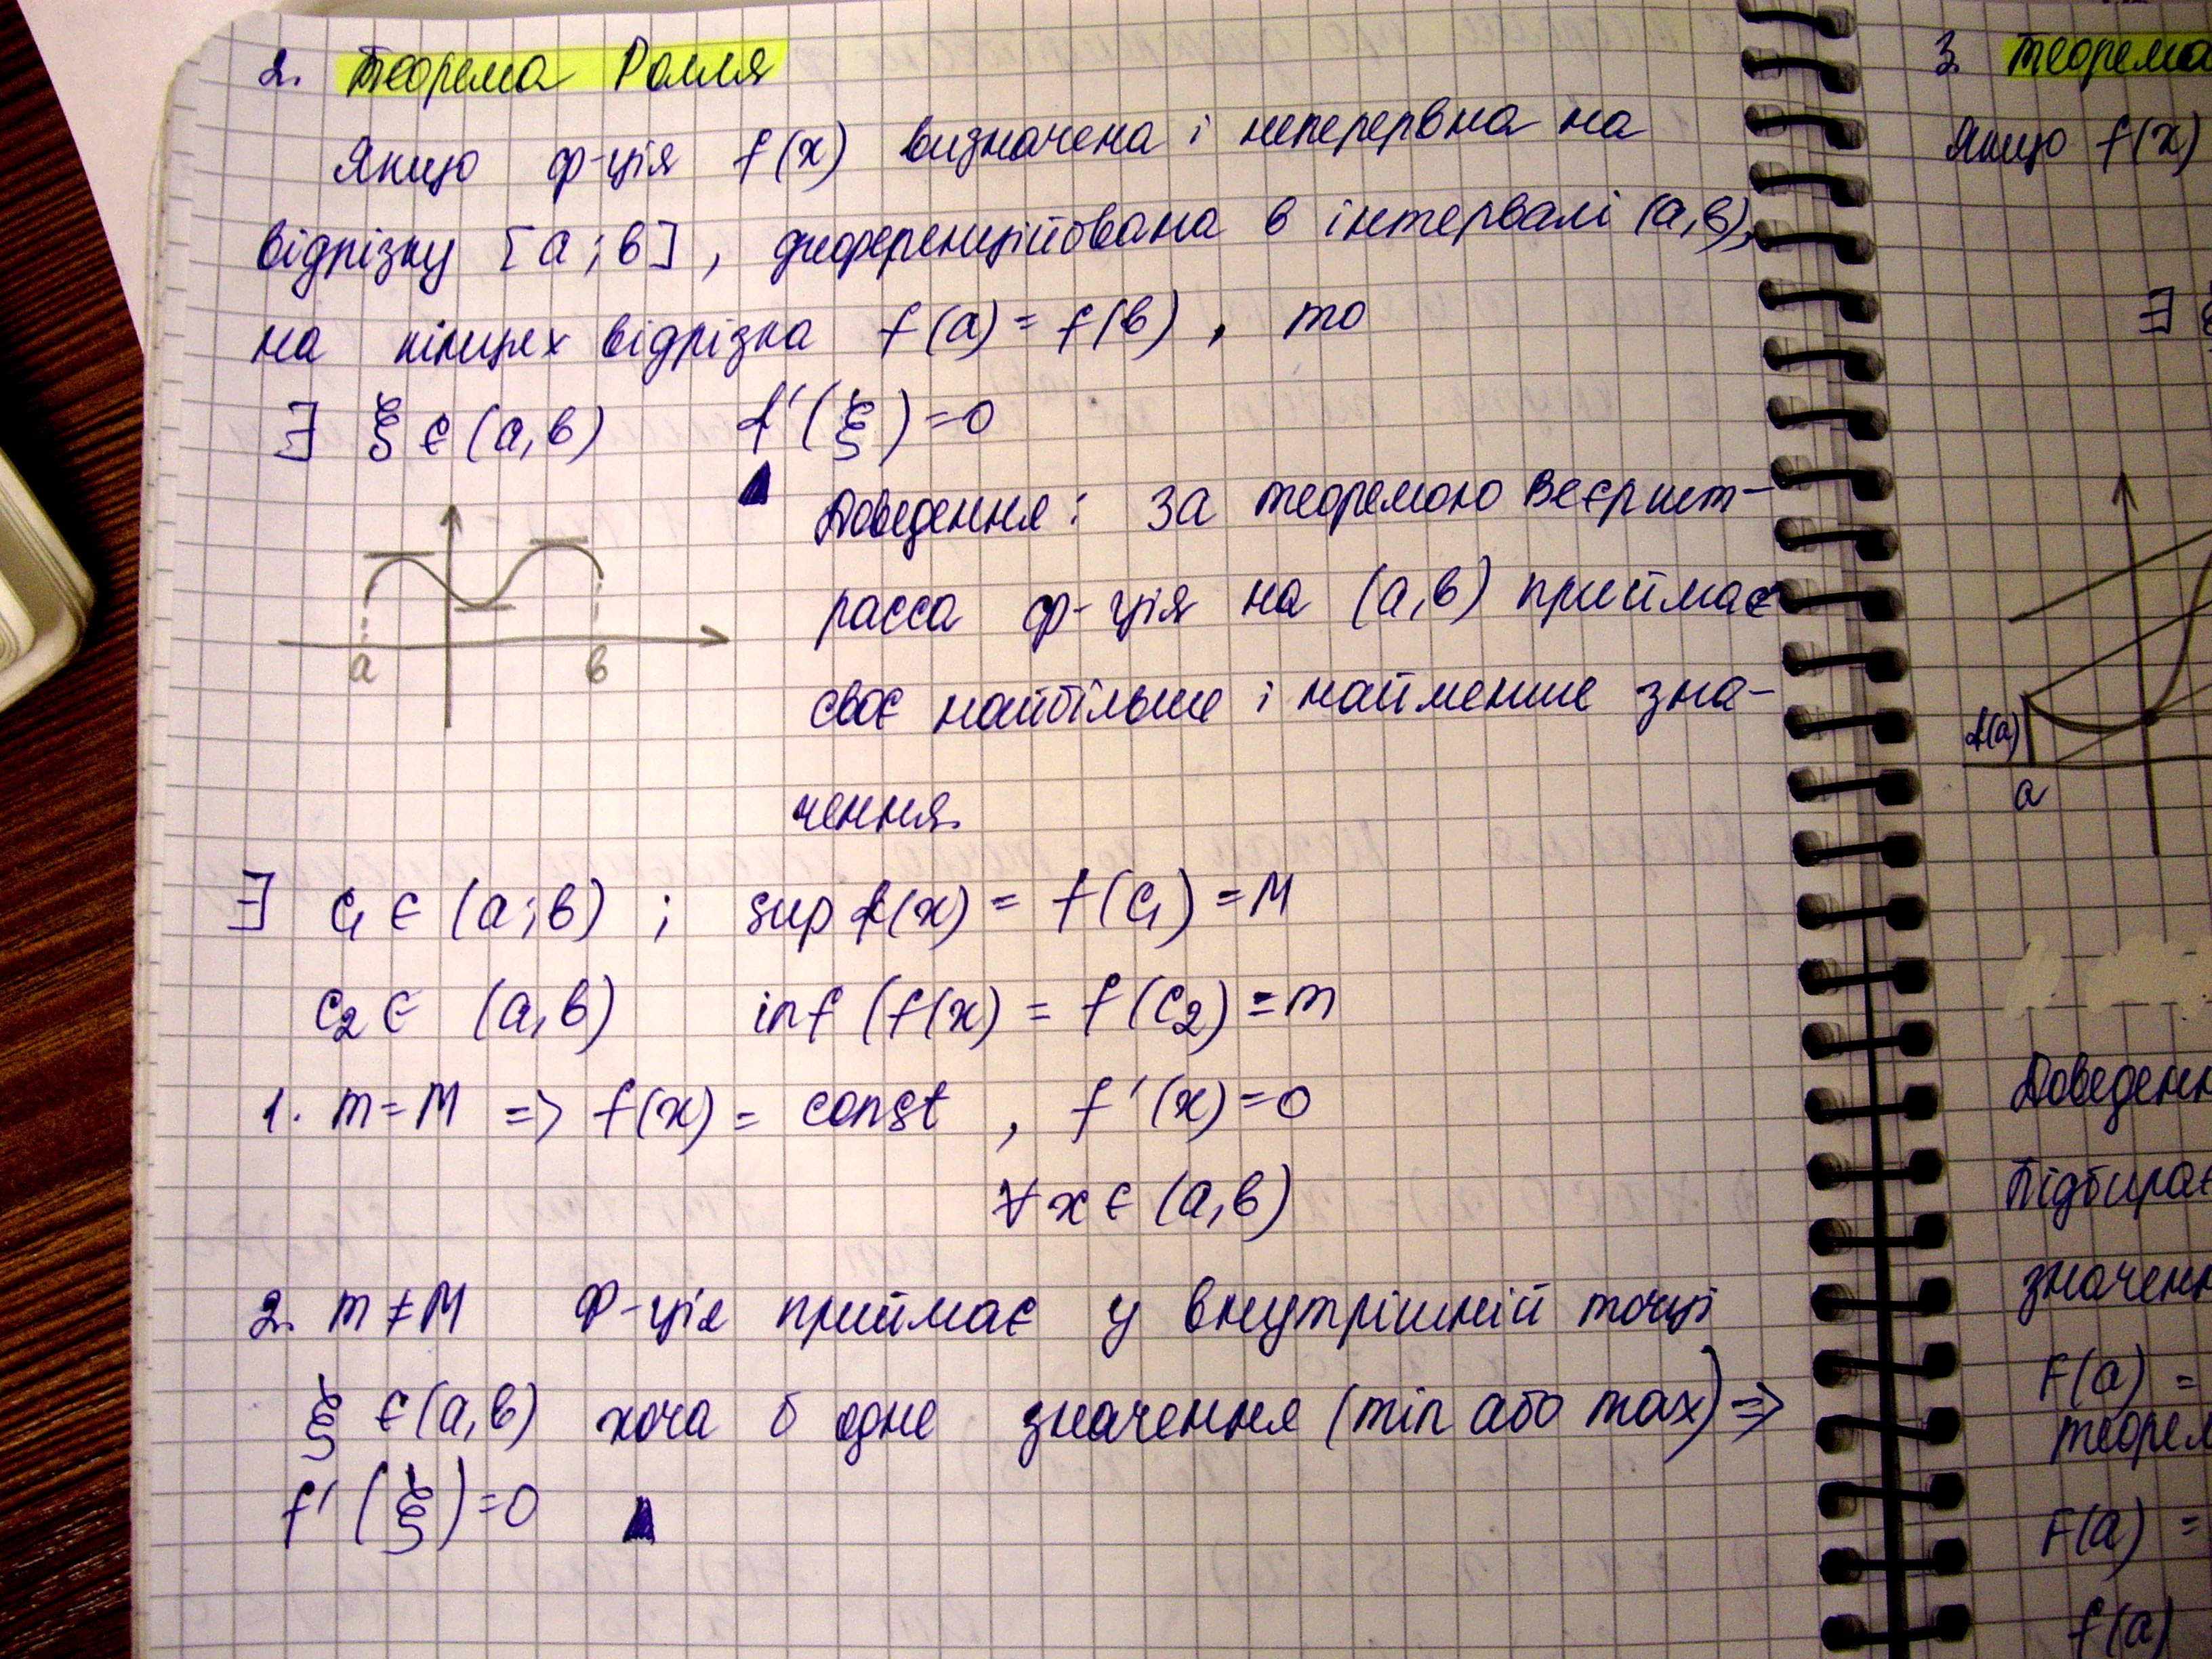 2. Теорема Ролля
Якщо ф-ція f(x) визначена і неперервна на
відрізку [a;b], диференційована в інтервалі (a,b),
на кінцях відрізка f(a) = f(b), то
∃ ξ ∈ (a,b) f'(ξ)=0
Доведення: за теоремою Веєршт-
расса ф-ція на (a,b) приймає
своє найбільше і найменше зна-
чення.
a b
∃ c₁ ∈ (a;b) ; sup f(x) = f(c₁) = M
c₂ ∈ (a,b) inf (f(x) = f(c₂) = m
1. m=M => f(x) = const , f'(x)=0
∀ x ∈ (a,b)
2. m≠M Ф-ція приймає у внутрішній точці
ξ ∈ (a,b) хоча б одне значення (min або max) =>
f'(ξ)=0
3. Теорема
Якщо f(x)
∃
f(a)
a
F(a) =
F(a) =
f(a)